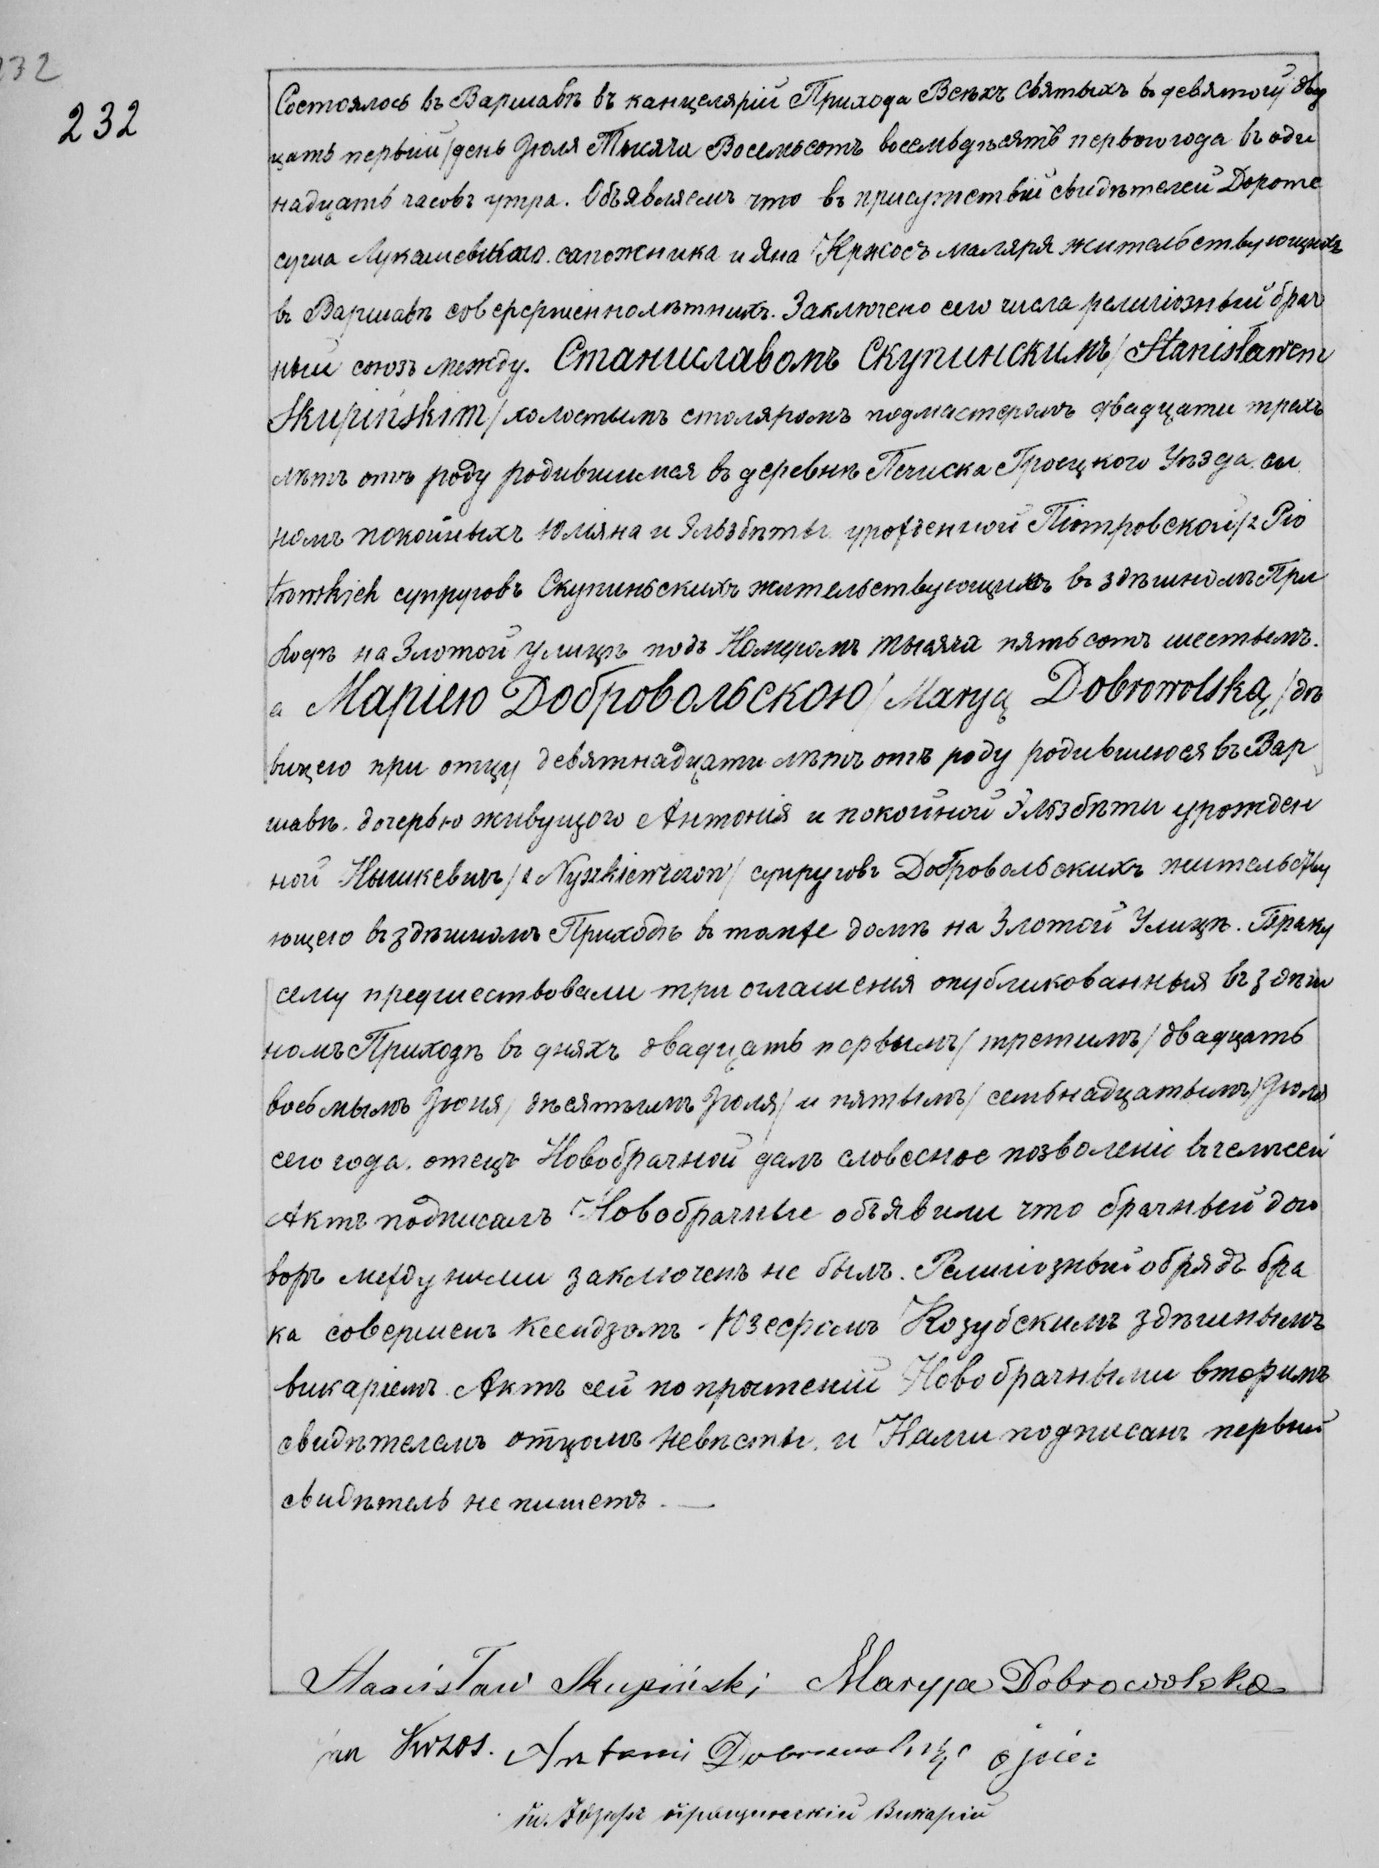 232
232
Состоялось въ Варшавѣ въ канцелярій Прихода Всѣхъ Святыхъ въ девятому два
цать первый/день Іюля Тысяча Восемьсотъ восемьдѣсятъ первого года въ оди
надцать часовъ утра. Объявляемъ что въ присутствій свидѣтелей Дороте
Лукашевского сапожника и Яна Кржосъ маляря жительствующихъ
въ Варшавѣ совершеннолѣтнихъ. Заключено сего числа религіозный брач
ный союзъ между. Станиславомъ Скупинскимъ/Stanisławem
Skupińskim/холостымъ столяромъ подмастеромъ двадцати трехъ
лѣтъ отъ роду родившимся въ деревнѣ Гроецкого Уѣзда. сы
номъ покойныхъ Юліяна и Эльзбѣты урожденной Піотровской/z Pio
trowskich супруговъ Скупиньскихъ жительствующимъ въ здѣшномъ При
ходѣ на Злотой улицѣ подъ Номеромъ тысяча пятьсотъ шестымъ.
а Маріею Добровольскою/Maryą Dobrowolską/дѣ
вицею при отцу девятнадцати лѣтъ отъ роду родившеюся въ Вар
шавѣ. дочерью живущого Антонія и покойной Эльзбѣти урожден
ной Нышкевичъ/z Nyszkiewiczow/супруговъ Добровольскихъ жительству
ющего въ здѣшномъ Приходѣ въ томже домѣ на Злотой Улицѣ. Браку
сему предшествовали три оглашенія опубликованныя въ здѣш
номъ Приходѣ въ дняхъ двадцать первымъ/третимъ/двадцать
восьмымъ Іюня/дѣсятымъ Іюля/и пятымъ/семьнадцатымъ/Іюля
сего года. отецъ Новобрачной далъ словесное позволеніе въ чемъ сей
Актъ подписалъ Новобрачные объявили что брачный дого
воръ между ними заключенъ не былъ. Религіозный обрядъ бра
ка совершенъ Ксендзомъ Юзефомъ Козубскимъ здѣшнымъ
викаріемъ. Актъ сей по прочтеній Новобрачными вторимъ
свидѣтелемъ отцомъ невѣсты. и Нами подписанъ первый
свидѣтель не пишетъ.
Stanisław Skupiński Maryja Dobrowolska
Krzos. Antoni Dobrowolski ojciec
Викарій